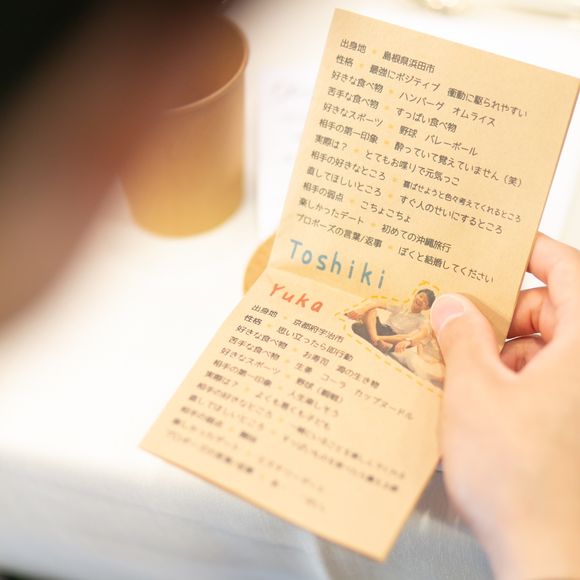 出身地 ・ 島根県浜田市
性格 ・ 最強にポジティブ 衝動に駆られやすい
好きな食べ物 ・ ハンバーグ オムライス
苦手な食べ物 ・ すっぱい食べ物
好きなスポーツ ・ 野球 バレーボール
相手の第一印象 ・ 酔っていて覚えていません（笑）
実際は？ ・ とてもお喋りで元気っこ
相手の好きなところ ・ 喜ばせようと色々考えてくれるところ
直してほしいところ ・ すぐ人のせいにするところ
相手の弱点 ・ こちょこちょ
楽しかったデート ・ 初めての沖縄旅行
プロポーズの言葉/返事 ・ ぼくと結婚してください
Toshiki
Yuka
出身地 ・ 京都府宇治市
性格 ・ 思い立ったら即行動
好きな食べ物 ・ お寿司 海の生き物
苦手な食べ物 ・ 生姜 コーラ カップヌードル
好きなスポーツ ・ 野球（観戦）
相手の第一印象 ・ 人生楽しそう
実際は？ ・ よくも悪くも子ども
相手の好きなところ
直してほしいところ
相手の弱点
楽しかったデート
プロポーズの言葉/返事